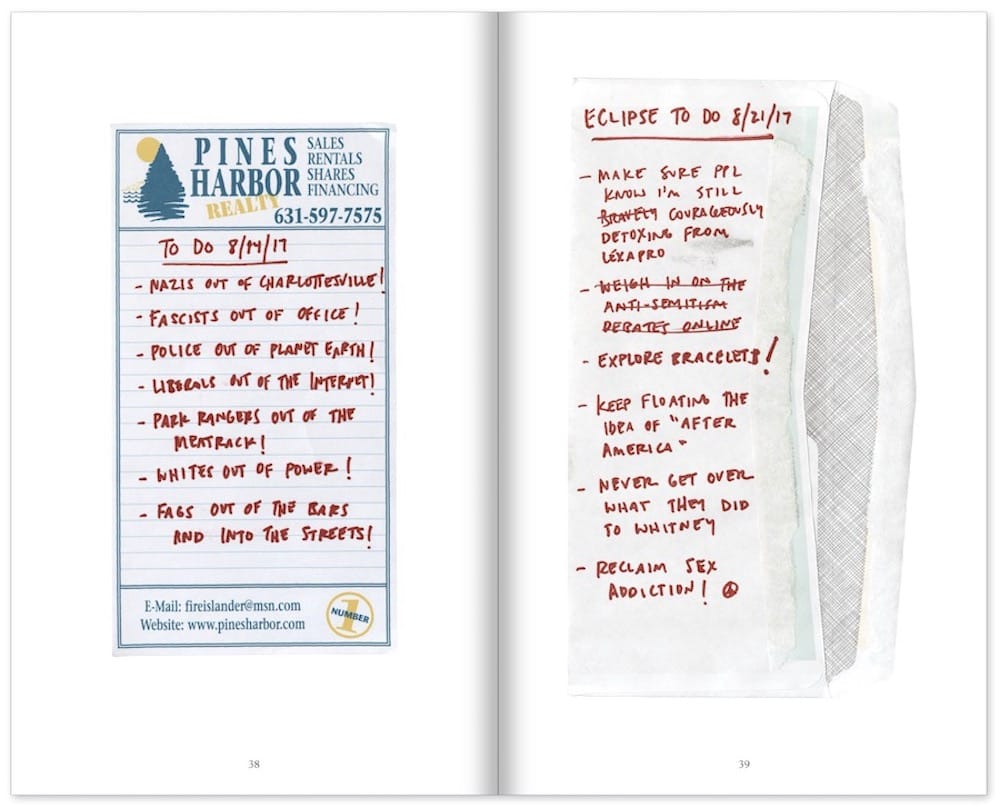 PINES
HARBOR
REALTY
SALES
RENTALS
SHARES
FINANCING
631-597-7575
TO DO 8/14/17
- NAZIS OUT OF CHARLOTTESVILLE!
- FASCISTS OUT OF OFFICE!
- POLICE OUT OF PLANET EARTH!
- LIBERALS OUT OF THE INTERNET!
- PARK RANGERS OUT OF THE
MEATRACK!
- WHITES OUT OF POWER!
- FAGS OUT OF THE BARS
AND INTO THE STREETS!
E-Mail: fireislander@msn.com
Website: www.pinesharbor.com
NUMBER
1
38
ECLIPSE TO DO 8/21/17
- MAKE SURE PPL
KNOW I'M STILL
BRAVELY COURAGEOUSLY
DETOXING FROM
LEXAPRO
- WEIGH IN ON THE
ANTI-SEMITISM
DEBATES ONLINE
- EXPLORE BRACELETS!
- KEEP FLOATING THE
IDEA OF "AFTER
AMERICA"
- NEVER GET OVER
WHAT THEY DID
TO WHITNEY
- RECLAIM SEX
ADDICTION!
39